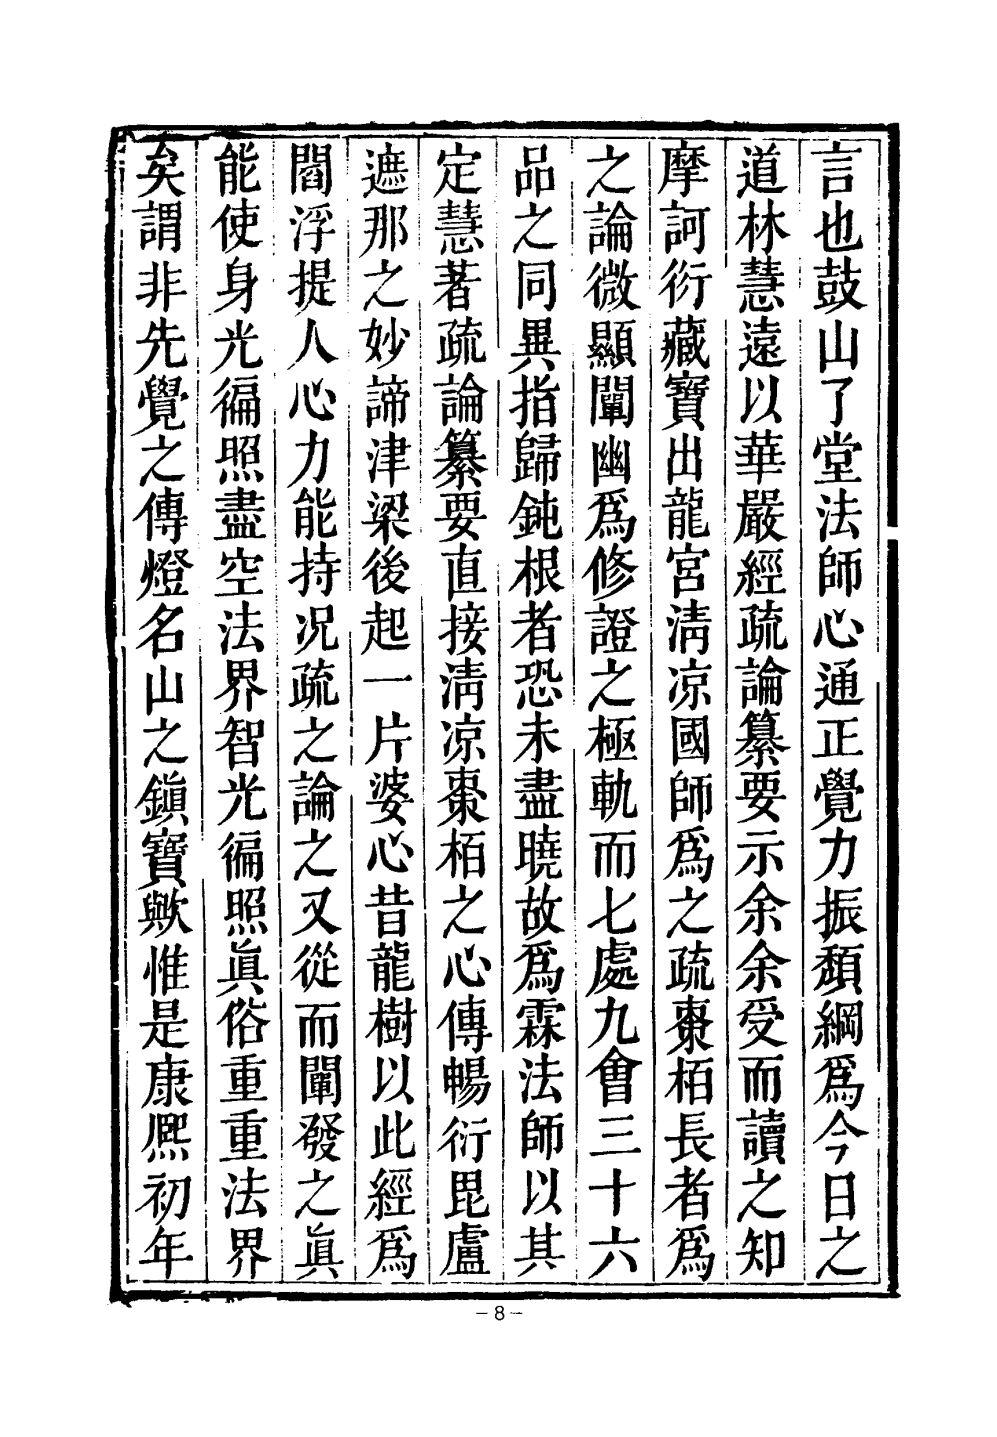 言也鼓山了堂法師心通正覺力振頹綱爲今日之
道林慧遠以華嚴經疏論纂要示余余受而讀之知
摩訶衍藏寶出龍宮淸涼國師爲之疏棗栢長者爲
之論微顯闡幽爲修證之極軌而七處九會三十六
品之同異指歸鈍根者恐未盡曉故爲霖法師以其
定慧著疏論纂要直接淸凉棗栢之心傳暢衍毘盧
遮那之妙諦津梁後起一片婆心昔龍樹以此經爲
閻浮提人心力能持況疏之論之又從而闡發之眞
能使身光徧照盡空法界智光徧照眞俗重重法界
矣謂非先覺之傳燈名山之鎭寶歟惟是康熙初年
-8-